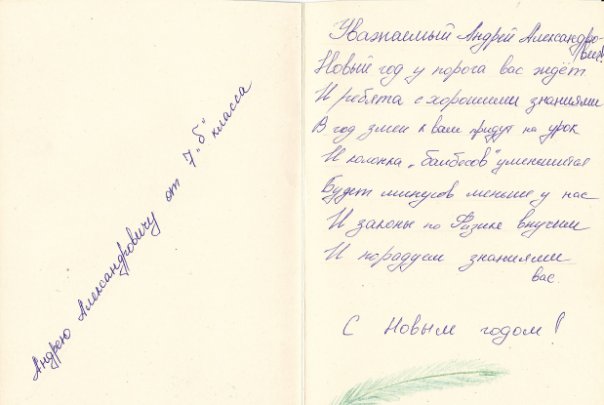 Андрею Александровичу от 7 „б" класса
Уважаемый Андрей Александро-
вич
Новый год у порога вас ждёт
И ребята с хорошими знаниями
В год змеи к вам придут на урок
И колонка „балбесов" уменьшится
Будет минусов меньше у нас
И законы по Физике внучим
И порадуем знаниями
вас.
С Новым годом!